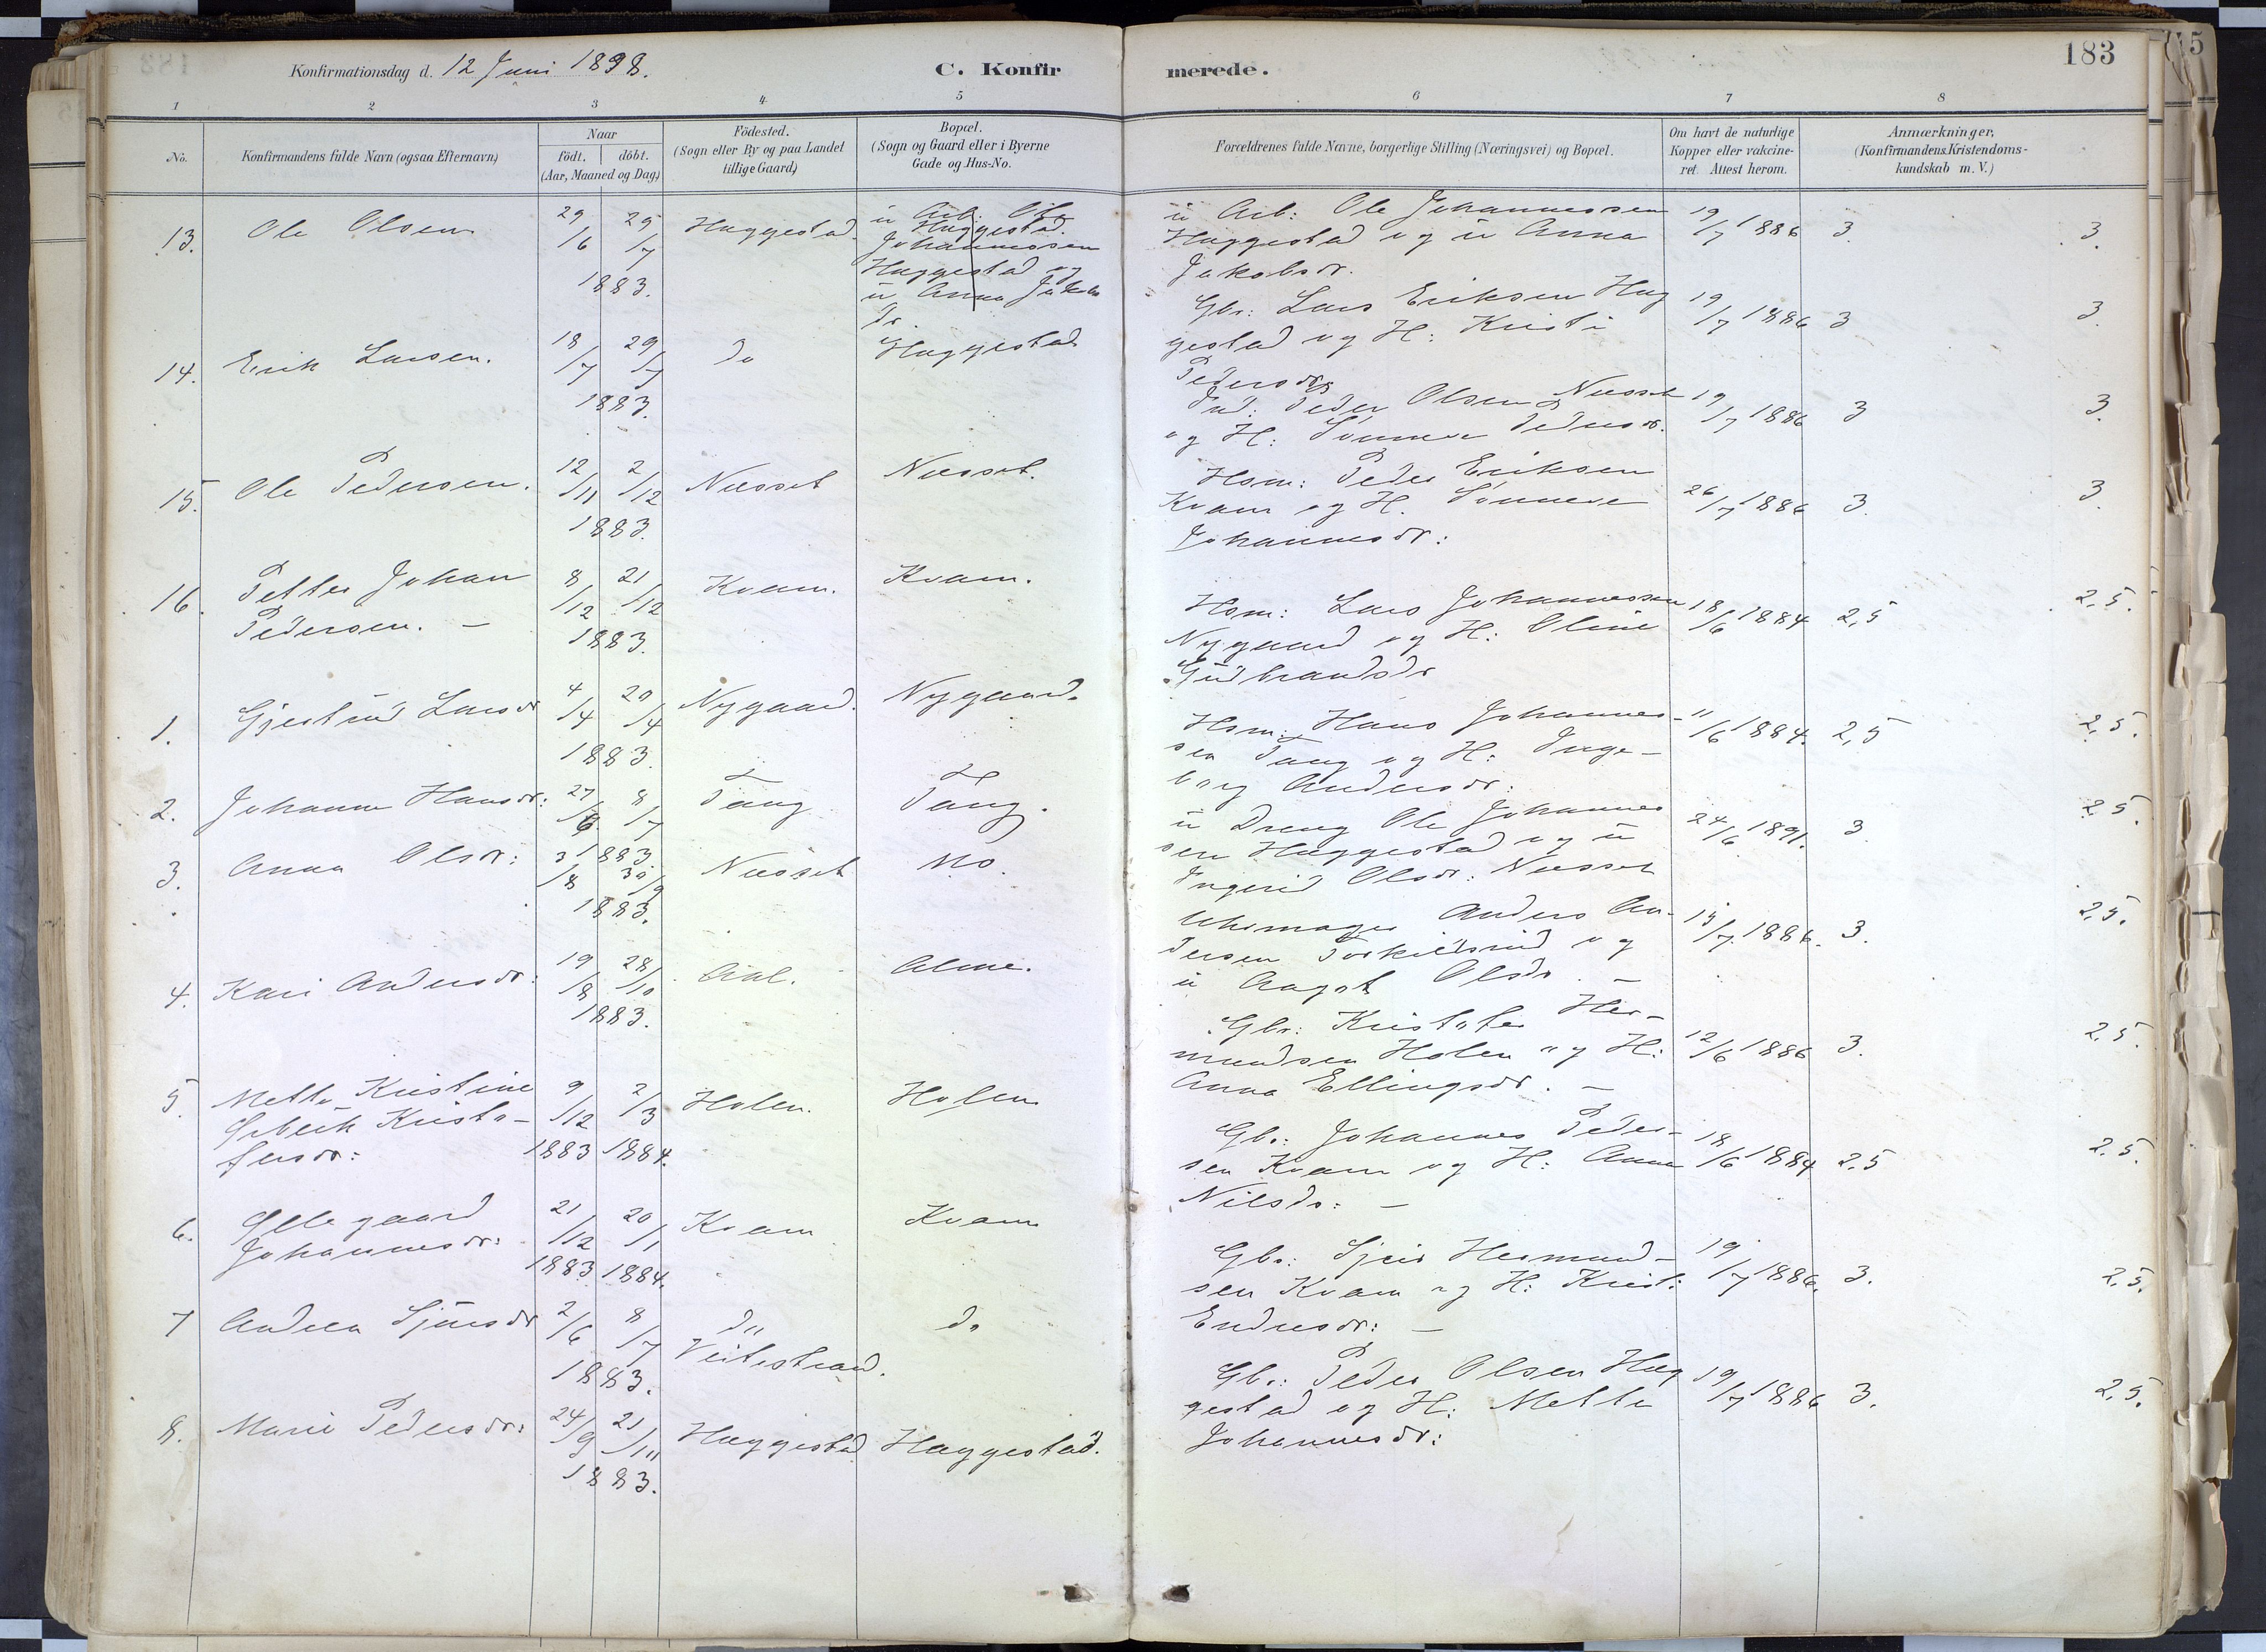 Konfirmationsdag d. 12 Juni 1898.
C. Konfir
merede.
183
1 2 3 4 5 6 7 8
No.
Konfirmandens fulde Navn (ogsaa Efternavn)
Naar
födt. döbt.
(Aar, Maaned og Dag.)
Födested.
(Sogn eller By og paa Landet
tillige Gaard)
Bopæl.
(Sogn og Gaard eller i Byerne
Gade og Hus-No.
Forældrenes fulde Navne, borgerlige Stilling (Næringsvei) og Bopæl.
Om havt de naturlige
Kopper eller vakcine-
ret. Attest herom.
Anmærkninger,
(Konfirmandens Kristendoms-
kundskab m. V.)
13. Ole Olsen 29/6 29/7 1883. Haggestad.
ü Arb: Ole
Haggestad.
Johannessen
Haggestad og
ü Anna Jakobs
dr.
ü Arb: Ole Johannessen
Haggestad og ü Anna
Jakobsdr.
19/7 1886 3. 3.
14. Erik Larsen. 18/7 29/7 1883. do Haggestad
Gbr: Lars Eriksen Hag
gestad og H: Kristi
Pedersdr
19/7 1886 3 3.
15. Ole Pedersen. 12/11 2/12 1883. Næsset Næsset.
Ind: Peder Olsen Næsset
og H: Sünneve Pedersdr.
19/7 1886 3 3.
16. Petter Johan
Pedersen. —
8/12 21/12 1883. Kvam. Kvam.
Hsm: Peder Eriksen
Kvam og H. Sünneve
Johannesdr:
26/7 1886 3. 3.
1. Gjertrüd Larsdr 4/4 20/4 1883. Nygaard. Nygaard.
Hsm: Lars Johannessen
Nygaard og H: Oline
Güdbrandsdr
18/6 1884 2,5 2,5.
2. Johanne Hansdr: 27/6 8/7 1883. Tang Tang.
Hsm: Hans Johannes-
sen Tang og H: Inge-
borg Andersdr:
11/6 1884. 2,5 2,5.
3. Anna Olsdr: 31/8 30/9 1883. Næsset Mo.
ü Dreng Ole Johannes
sen Haggestad og ü
Ingerid Olsdr: Næsset
24/6 1891. 3. 2.5.
4. Kari Andersdr: 19/8 28/10 1883. Aal. Alme.
Uhrmager Anders An-
dersen Torkildsrud og
ü Aagot Olsdr. —
15/7. 1886. 3. 2,5.
5. Mette Kristine
Kristo-
fersdr:
9/12 1883 2/3 1884. Holen. Holen
Gbr: Kristofer Her-
mundsen Holen og H:
Anna Ellingsdr. —
12/6 1886 3. 2.5.
6. Øllegaard
Johannesdr:
21/12 1883 20/1 1884. Kvam Kvam
Gbr: Johannes Peder-
sen Kvam og H: Anna
Nilsdr: —
18/6 1884 2.5 2.5.
7 Andrea Sjürsdr 2/6 8/7 1883. do
Veitestrand.
do
Gbr: Sjur Hermund-
sen Kvam og H: Kristi
Endresdr: —
19/7 1886. 3. 2,5.
8. Marie Pedersdr: 24/9 21/11 1883. Haggestad Haggestad.
Gbr: Peder Olsen Hag
gestad og H: Mette
Johannesdr:
19/7 1886 3. 2,5.